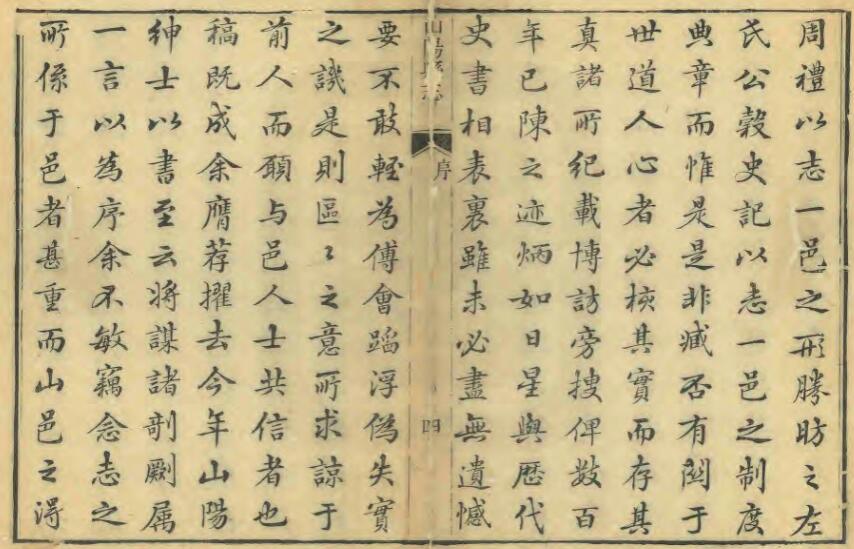 周禮以志一邑之形勝昉之左
氏公穀史記以志一邑之制度
典章而惟是是非臧否有関于
世道人心者必核其實而存其
真諸所紀載博訪旁搜俾数百
年已陳之迹炳如日星與歷代
史書相表裏雖未必盡無遺憾
山陽縣志 序 四
要不敢輕為傅會蹈浮偽失實
之譏是則區〻之意所求諒于
前人而願与邑人士共信者也
稿既成余膺荐擢去今年山陽
紳士以書至云將謀諸剞劂属
一言以為序余不敏竊念志之
所係于邑者甚重而山邑之淂